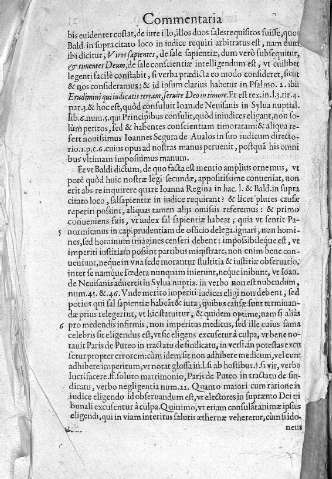 Commentaria
bis euidenter costat, de iure illo, illos duos sales requisitos fuisse, quos
Bald. in supra citato loco in iudice requiri arbitratus est, nam dum
ibi dicitur, Viros sapientes, de sale sapientiæ, dum verò subsequitur,
& timentes Deum, de sale conscientiæ intelligendum est, vt cuilibet
legenti facilè constabit, si verba prædicta eo modo consideret, sicut
& nos consideramus; & id ipsum darius habetur in Psalmo. 2. ibi
Erudimini qui iudicatis terram, seruite Domino in timore. Et est tex. in l.
par. & hoc est, quod consuluit Ioan. de Neuisanis in Sylua nuptial.
lib. num. 5. qui Principibus consulit, quod in iudices eligant, non so-
lùm peritos, sed & habentes conscientiam timoratam: & aliquid re-
fert nouissimus Ioannes Segura de Aualos in suo iudicum directo-
rio. cuius opus ad nostras manus peruenit, postquã his omni
bus vltimam imposuimus manum.
Et vt Baldi dictum, de quo facta est mentio amplius ornemus, vt
potè quòd huic nostræ legi secundæ, appositissimè conueniat, non
erit abs re inquirere quare Ioanna Regina in hac. l. & Bald. in supra
citato loco, sal sapientiæ in iudice requirant: & licet plures causæ
reperiri possint, aliquas tamen alijs omissis referemus: & primo
conuemens fuit, vt iudex sal sapientiæ habeat, quia vt sentit Pa-
5 normitanus in cap. prudentiam de officio deleg. ignari, non homi-
nes, sed hominum imagines censeri debent: impossibile que est, vt
imperiti iustitiam possint partibus impartiri, non enim bene con-
ueniunt, neque in vna sede morantur stultitia & iustitiæ obseruatio,
inter se namque fœdera nunquam inierunt, neque inibunt, vt Ioan.
de Neuisanis aduertit in Sylua nuptia. in verbo non est nubendum,
num. 45. & 46. Vnde merito imperiti iudices eligi non debent, sed
potius qui sal sapientiæ habeat & iura, quibus causæ sunt terminan-
dæ prius telegerint, vt
6 pro medendis infirmis, non imperitos medicus, sed ille cuius fama
celebris sit eligendus est, vt sic eligens excusetur à culpa, vt bene no-
tauit Paris de Puteo in tractatu de sindicatu, in versi. an potestas excu
setur propter errorem: cùm idem sit non adhibere medicum, vel eum
adhibere imperitum, vt notat glossa in l.
lucri facere. ff. soluto matrimonio, Paris de Puteo in tractatu de sin-
dicatu, verbo negligentia num. Quanto maiori cum ratione in
iudice eligendo id obseruandum est, vt electores in supremo Dei tri
bunali excusentur à culpa. Quinimo, vt etiam consulat animæ ipsius
eligendi, qui in viam interitus salutis æthernæ veheretur, cùm si ido-
neus